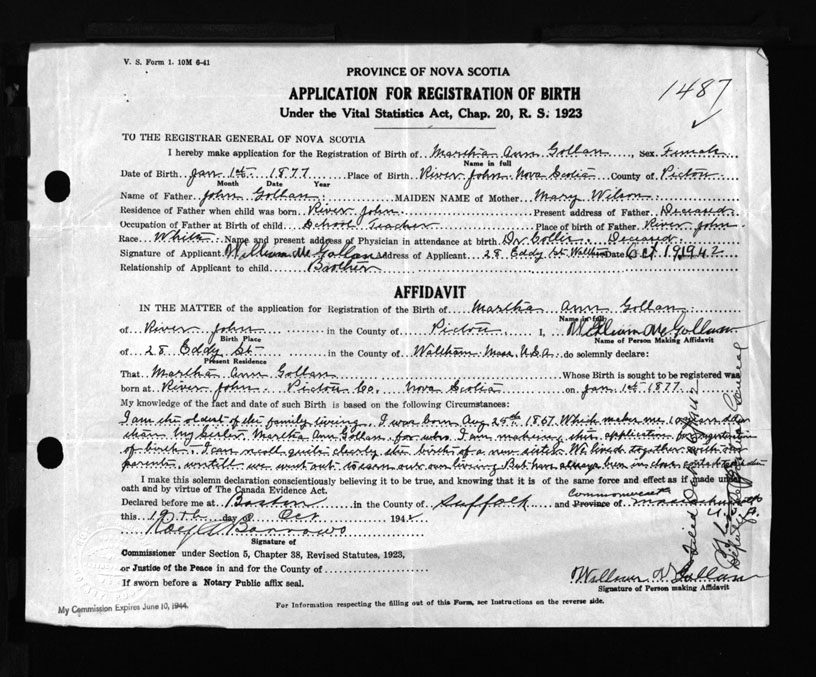 V. S. Form 1. 10M 6-41
PROVINCE OF NOVA SCOTIA
1487
APPLICATION FOR REGISTRATION OF BIRTH
Under the Vital Statistics Act, Chap. 20, R. S. 1923
TO THE REGISTRAR GENERAL OF NOVA SCOTIA
I hereby make application for the Registration of Birth of Martha Ann Gollan, Sex Female
Name in full
Date of Birth Jan 1st 1877 Place of Birth River John Nova Scotia County of Pictou
Month Date Year
Name of Father John Gollan MAIDEN NAME of Mother Mary Wilson
Residence of Father when child was born River John Present address of Father Deceased
Occupation of Father at Birth of child School Teacher Place of birth of Father River John
Race White Name and present address of Physician in attendance at birth Dr Collie Deceased
Signature of Applicant William M Gollan Address of Applicant 28 Eddy St Waltham Date Oct 19 1942
Relationship of Applicant to child Brother
AFFIDAVIT
IN THE MATTER of the application for Registration of the Birth of Martha Ann Gollan
Name in full
of River John in the County of Pictou I, William M Gollan
Birth Place Name of Person Making Affidavit
of 28 Eddy St in the County of Waltham Mass U.S.A. do solemnly declare:
Present Residence
That Martha Ann Gollan Whose Birth is sought to be registered was
born at River John Pictou Co. Nova Scotia on Jan 1st 1877
My knowledge of the fact and date of such Birth is based on the following Circumstances:
I am the oldest of the family living. I was born Aug 29th 1867. Which makes me 10 years older
than my sister Martha Ann Gollan, for who I am making this application for registration
of birth. I can recall quite clearly the birth of a new sister. We lived together with our
parents, untill we went out to earn our own living But have always been in close contact
I make this solemn declaration conscientiously believing it to be true, and knowing that it is of the same force and effect as if made under
oath and by virtue of The Canada Evidence Act.
Commonwealth
Declared before me at Boston in the County of Suffolk and Province of Massachusetts
U. S. A.
this 19th day of Oct 1942
Barrows
Signature of
Commissioner under Section 5, Chapter 38, Revised Statutes, 1923,
or Justice of the Peace in and for the County of
If sworn before a Notary Public affix seal.
William M Gollan
Signature of Person making Affidavit
My Commission Expires June 10, 1944.
For Information respecting the filling out of this Form, see Instructions on the reverse side.
Deputy Registrar General